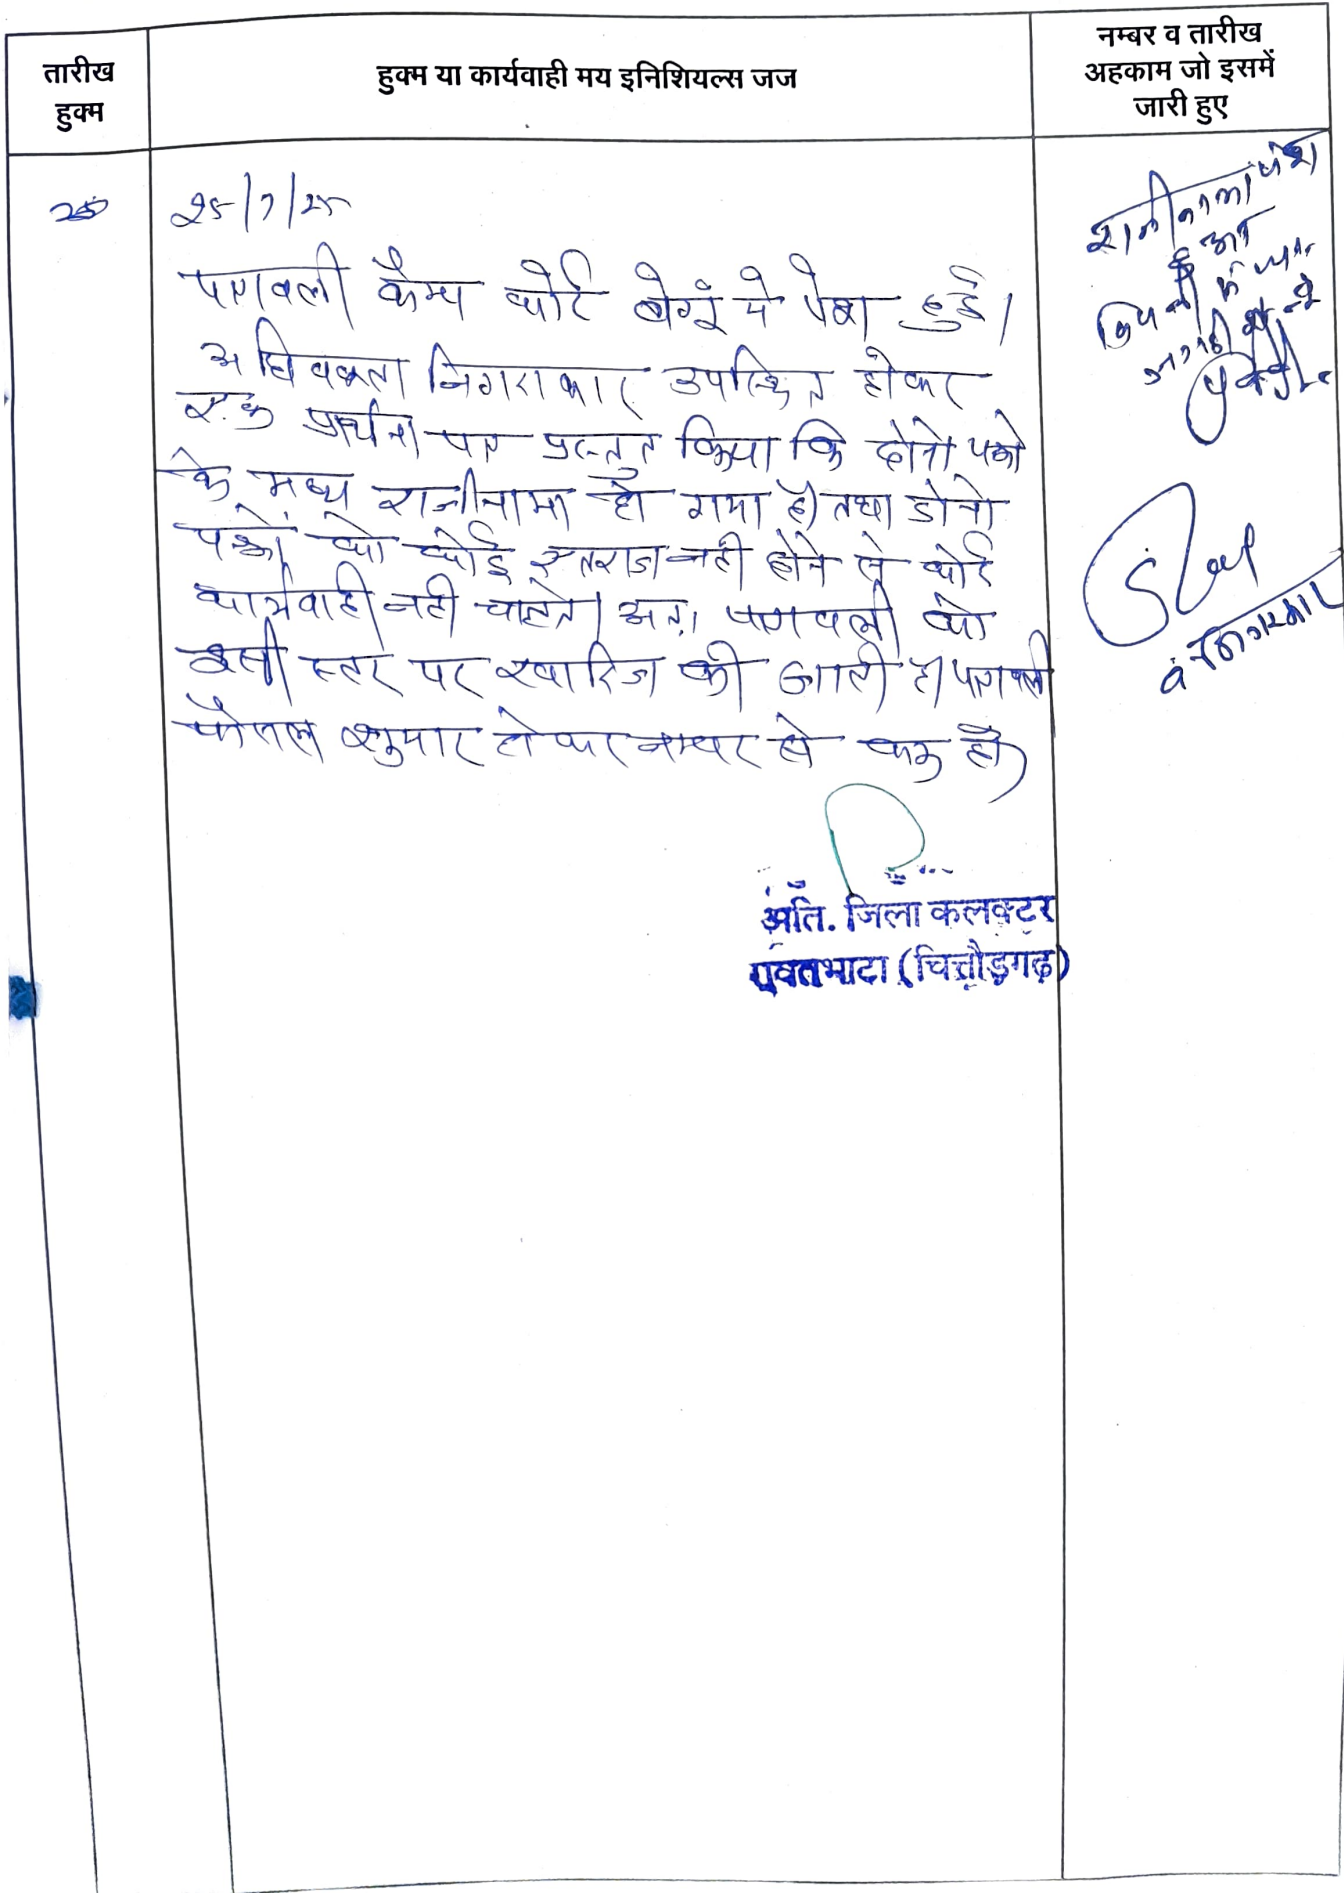 तारीख
हुक्म
हुक्म या कार्यवाही मय इनिशियल्स जज
नम्बर व तारीख
अहकाम जो इसमें
जारी हुए
25/7/25
पत्रावली कैम्प कोर्ट बेगूं में पेश हुई।
अधिवक्ता निगराकार उपस्थित होकर
एक प्रार्थना पत्र प्रस्तुत किया कि दोनो पक्षो
के मध्य राजीनामा हो गया है तथा दोनो
पक्षों को कोई एतराज नही होने से कोई
कार्यवाही नही चाहते। अतः पत्रावली को
इसी स्तर पर खारिज की जाती है। पत्रावली
फैसल शुमार होकर नम्बर से कम हो।
अति. जिला कलक्टर
रावतभाटा (चित्तौड़गढ़)
राजीनामा पेश
हुआ